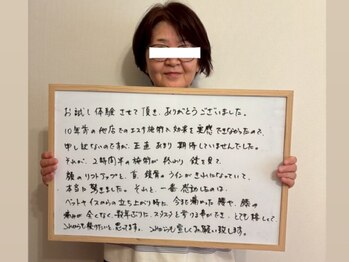 お試し体験させて頂き、ありがとうございました。
10年前の他店でのエステ施術で効果を実感できなかったので、
申し訳ないのですが、正直あまり期待していませんでした。
それが、2時間半の施術が終わり鏡を見て
顔のリフトアップと、首、鎖骨のラインがきれいになっていて、
本当に驚きました。それと、一番感動したのは、
ベットやイスからの立ち上がり時に、今まで痛かった腰や、膝の
痛みが全くなく、数年ぶりにスタスタと歩ける事ができ、とても嬉しくて
これからも続けたいと思ってます。これからも宜しくお願い致します。